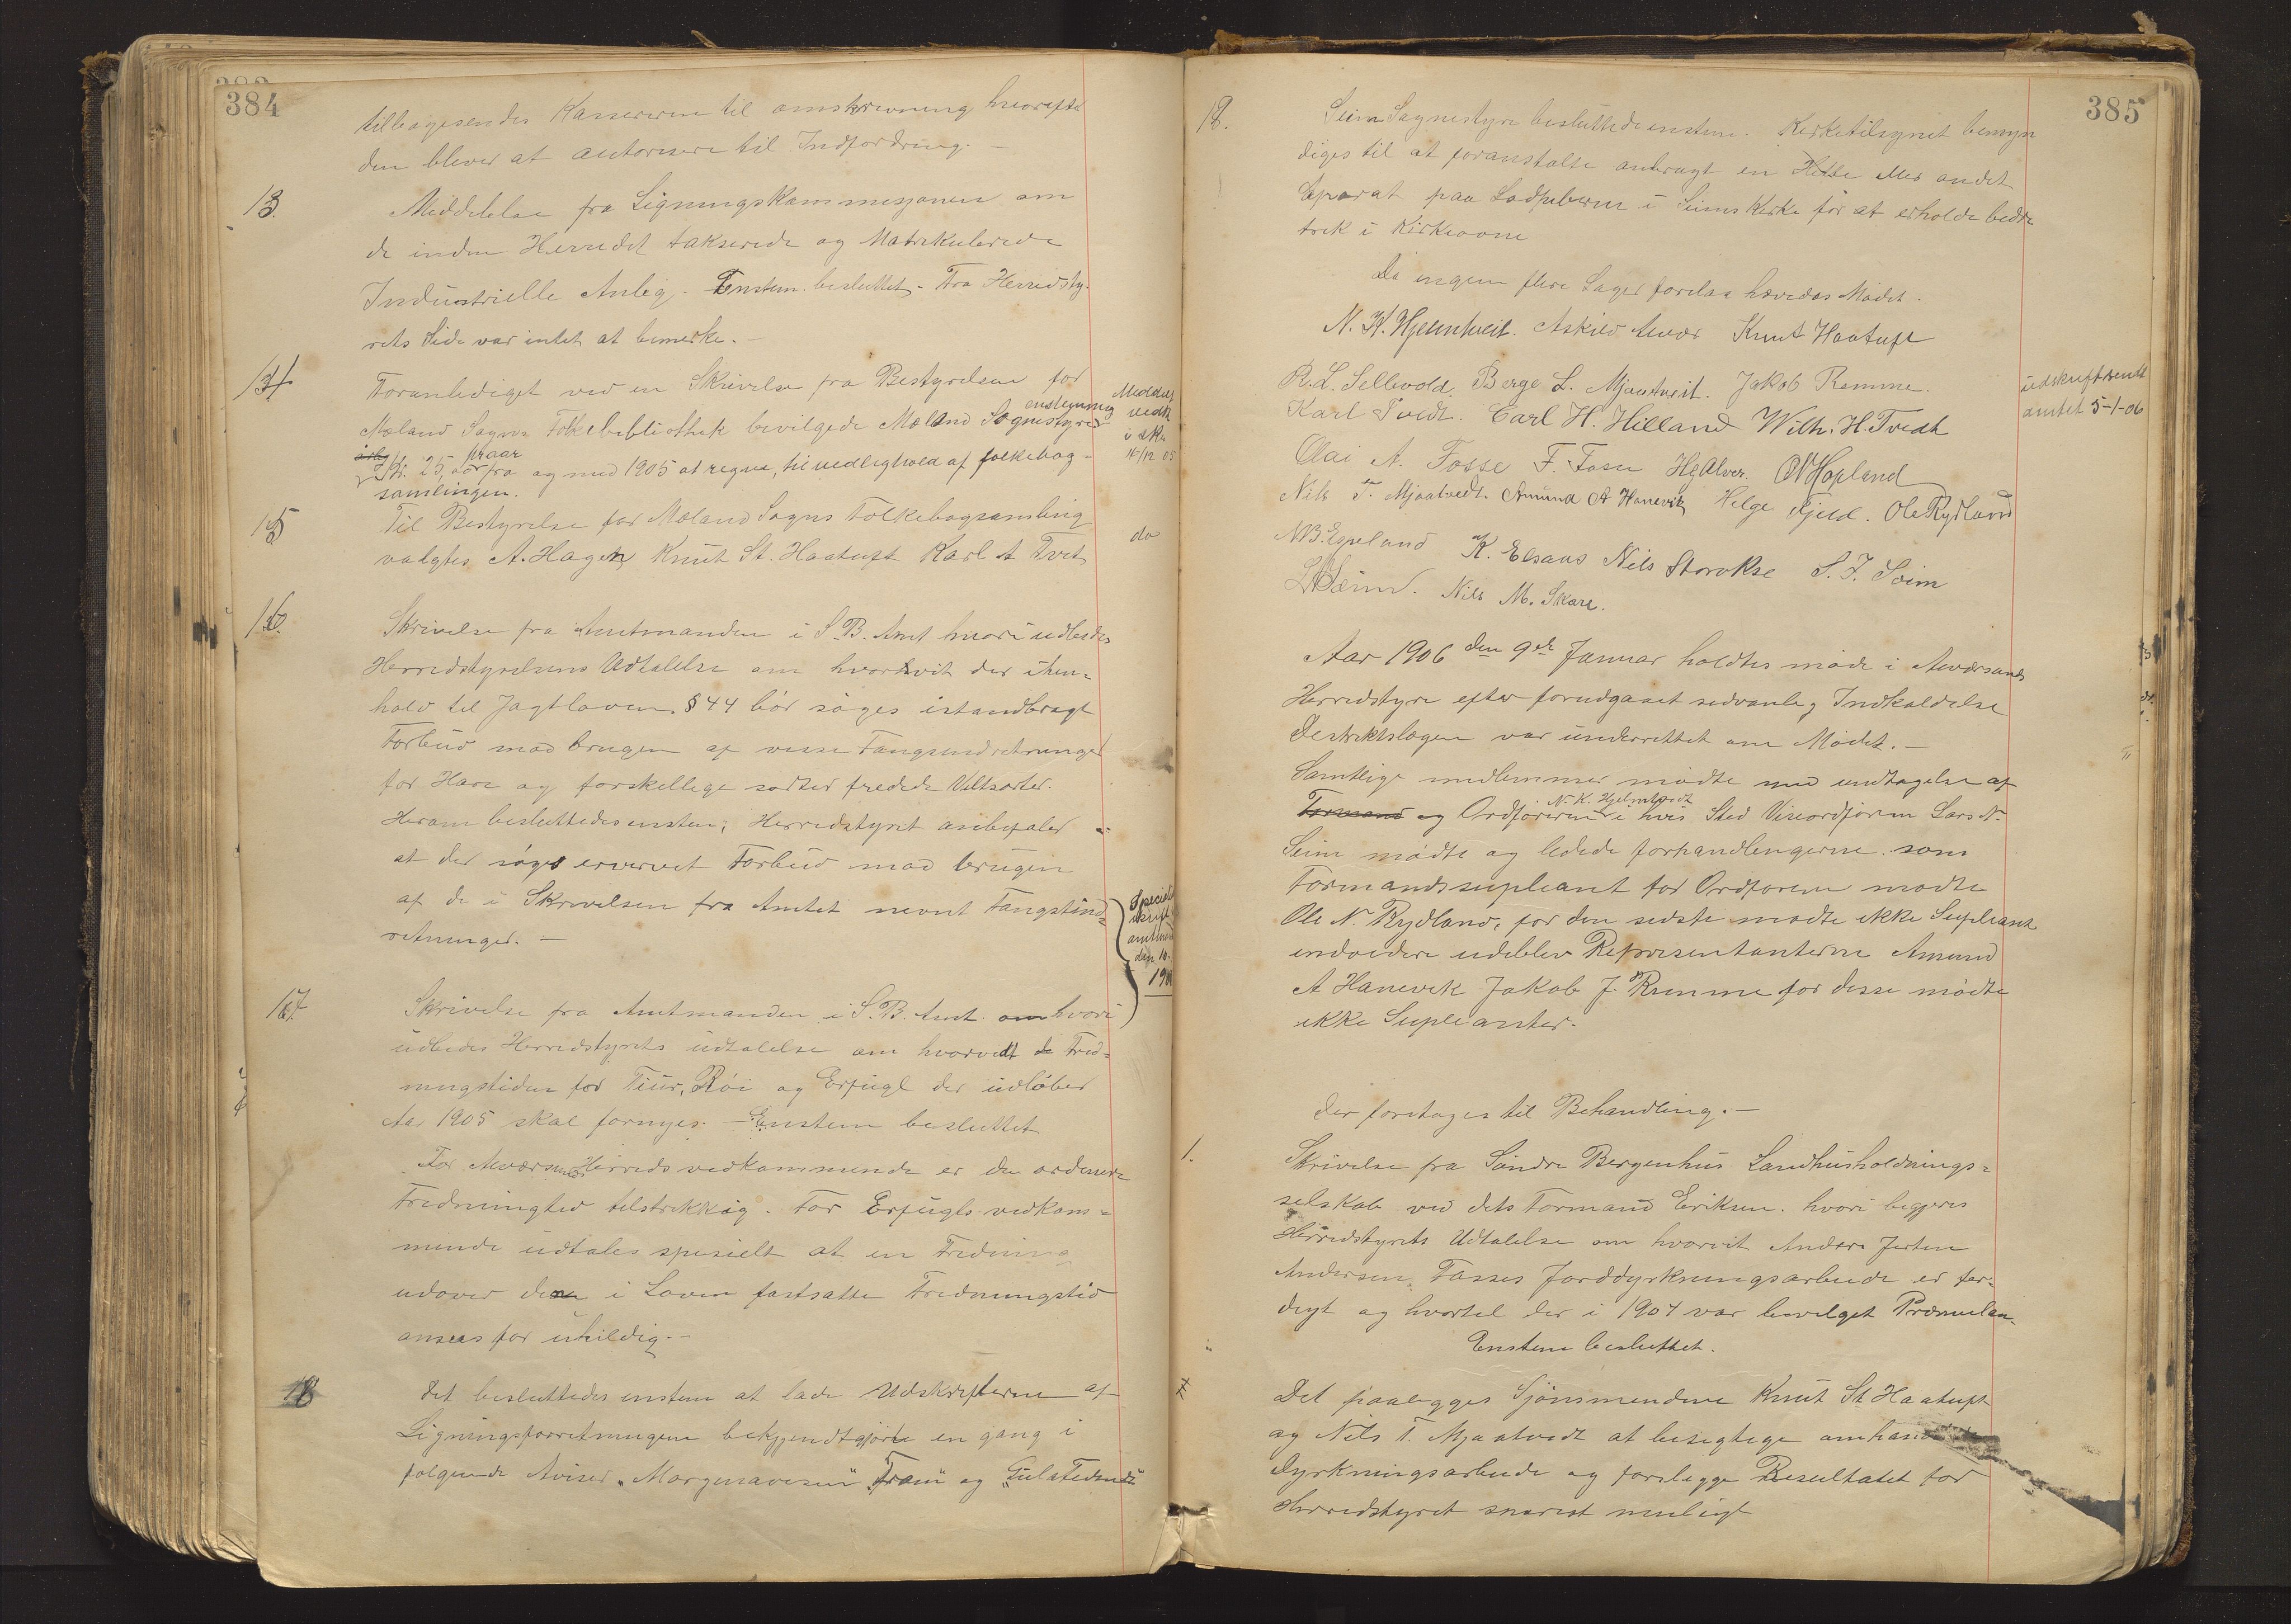 384
tilbagesendes Kassereren til omskrivning hvorefter
den blever at autorisere til Indfordring. –
13.
Meddelelse fra Ligningskommisjonen om
de inden Herredet takserede og Matrikulerede
Industrielle Anlæg. Enstem. besluttet – Fra Herredsty-
rets Side var intet at bemerke. –
14.
Foranlediget ved en Skrivelse fra Bestyrelsen for
Mæland Sogns Folkebibliothek bevilgede Mæland Sognestyre enstemmig
Kr. 25, pr aar fra og med 1905 at regne, til vedligehold af folkebog-
samlingen.
Meddelt
vedk
i skr
14/12 05
15
Til Bestyrelse for Mæland Sogns Folkebogsamling
valgtes A. Hagen, Knut St. Haatuft Karl A Tvet
do
16.
Skrivelse fra Amtmanden i S. B. Amt hvori udbedes
Herredstyrelsens Udtalelse om hvorvit der i hen-
hold til Jagtloven § 44 bør søges istandbragt
Forbud mod brugen af visse Fangstindretninger
for Hare og forskellige sorter fredede Viltsorter.
Herom besluttedes enstem; Herredstyret anbefaler
at der søges ervervet Forbud mod brugen
af de i Skrivelsen fra Amtet nevnt Fangstind-
retninger. –
17.
Skrivelse fra Amtmanden i S. B. Amt. om hvori
udbedes Herredstyrets udtalelse om hvorvidt de Fred-
ningstiden for Tiur, Røi og Erfugl der udløber
Aar 1905 skal fornyes. – Enstem besluttet
For Alværsunds Herreds vedkommende er den ordinære
Fredningtid tilstrekkelig. For Erfugls vedkom-
mende udtales spesielt at en Fredning
udover den i Loven fastsatte Fredningstid
ansees for uheldig. –
18
Det besluttedes enstem at lade Udskrifterne af
Ligningsforretningene bekjendtgjøre en gang i
følgende Aviser „Morgenavisen" „Fram" og „Gula Tidend"
385
18.
Seim Sognestyre besluttede enstem. Kirketilsynet bemyn
diges til at foranstalte anbragt en Hette eller andet
Aparat paa Lodpiberne i Seims Kirke for at erholde bedre
trek i Kirkeovne
Da ingen flere Sager forelaa hævedes Mødet.
N. K. Hjelmtveit. Askild Alvær Knut Haatuft
R. L. Sellevold. Berge L. Mjaatveit. Jakob Remme.
Karl Tvedt. Carl H. Hilland Wilh. H. Tvedt
Olai A. Fosse F. Fosse Hg Alver. O N Hopland
Nils T. Mjaatvedt. Amund A Hanevik Helge Fjeld. Ole Rydland
N B. Espeland K. Elsaas Nils Storokse S. J. Seim
L N Seim. Nils M. Skare.
udskrift sendt
amtet 5-1-06
Aar 1906 den 9de Januar holdtes møde i Alværsunds
Herredstyre efter forudgaaet sedvanlig Indkaldelse
Destriktslægen var underrettet om Mødet. –
Samtlige medlemmer mødte med undtagelse af
Formand og Ordføreren N. K. Hjelmtvedt i hvis Sted Viseordføren Lars N.
Seim mødte og ledede forhandlingerne. som
Formandssupleant for Ordføren mødte
Ole N. Rydland, for den sidste mødte ikke Supleant
endvidere udeblev Repræsentanterne Amund
A Hanevik Jakob J. Remme for disse mødte
ikke Supleanter.
Der foretages til Behandling. –
1.
Skrivelse fra Søndre Bergenhus Landhusholdnings-
selskab ved dets Formand Eriksen. hvori begjæres
Herredstyrets Udtalelse om hvorvit Anders
Andersen Fosses Jorddyrkningsarbeide er fær-
digt og hvortel der i 1904 var bevilget
Enstem besluttet.
Det paalegges Sjønsmendene Knut St Haatuft
og Nils T. Mjaatvedt at besigtege
Dyrkningsarbeide og forelegge Resultatet for
Herredstyret snarest muligt